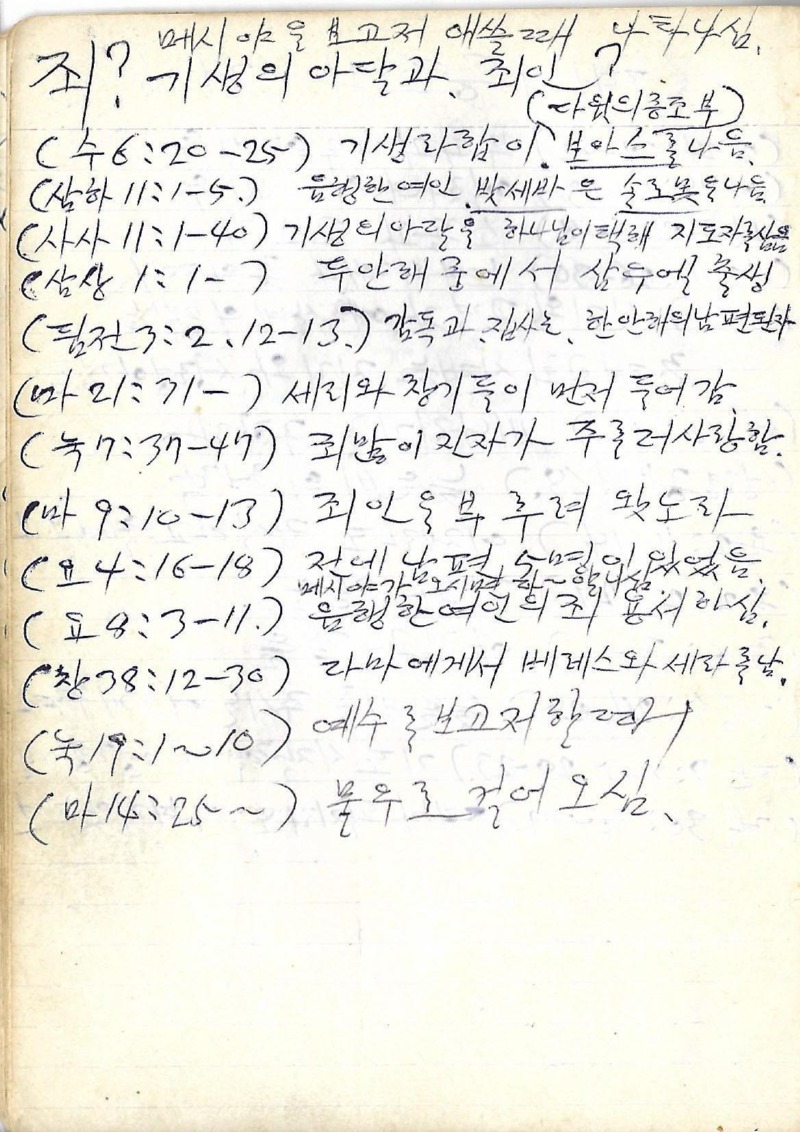 메시야을 보고저 애쓸때 나타나심.
죄? 기생의 아달과, 죄인?
(다윗의증조부)
(수6:20-25) 기생라합이, 보아스를나음.
(삼하11:1-5.) 음행한여인, 밧세바은 솔로몬을나음
(사사11:1-40) 기생의아달을 하나님이택해 지도자를삼음
(삼상1:1- ) 두안해중에서 삼우엘 출생
(딤전3:2, 12-13.) 감독과, 집사는, 한안해의남편된자
(마21:31- ) 세리와 창기들이 먼저 들어감.
(눅7:37-47) 죄많이진자가 주를더사랑함.
(마9:10-13) 죄인을부루려 왓노라
(요4:16-18) 전에 남편 5명이있었음.
메시야가 오시면
(요8:3-11.) 음행한여인의죄 용서하심.
(창38:12-30) 다마에게서 베레스와 세라를남.
(눅19:1~10) 예수를보고저할때
(마14:25~) 물우로 걸어오심.